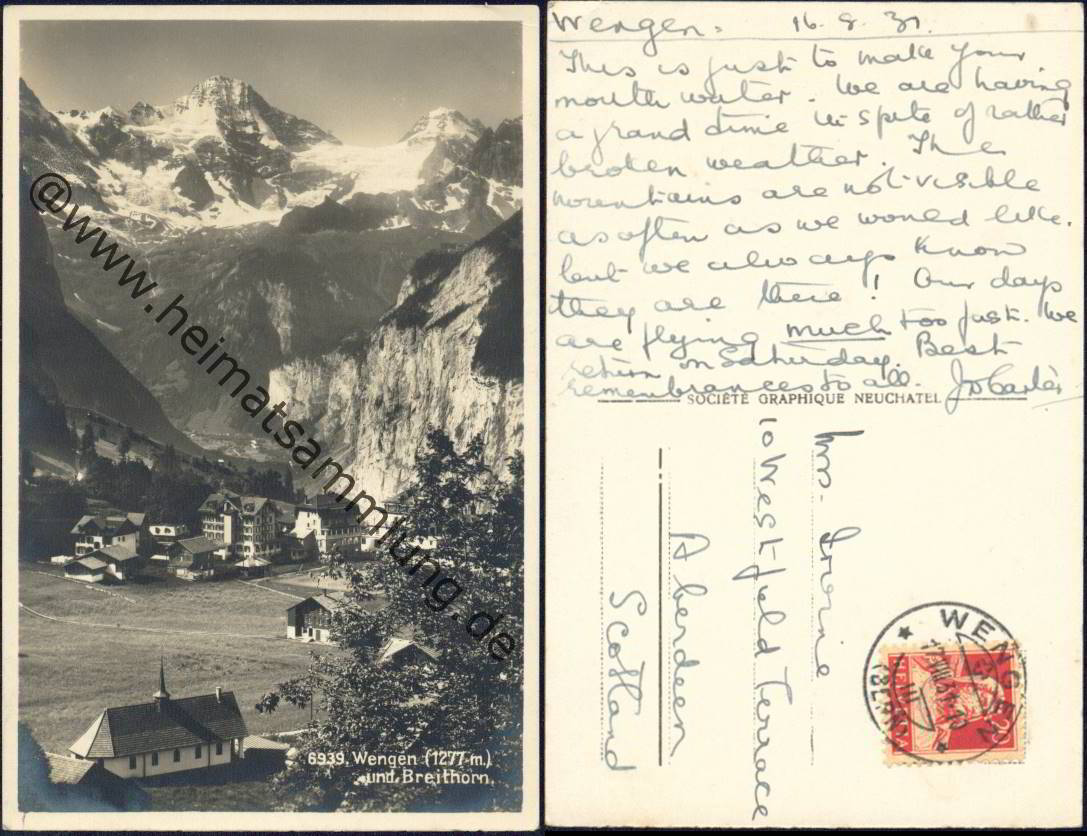 @www.heimatsammlung.de
6939. Wengen (1277 m.)
und Breithorn.
Wengen. 16.8.31.
This is just to make your
mouth water. We are having
a grand time in spite of rather
broken weather. The
mountains are not visible
as often as we would like.
but we always know
they are there! Our days
are flying much too fast. We
return on Saturday. Best
remembrances to all.
SOCIÉTÉ GRAPHIQUE NEUCHATEL
Mrs.
10 Westfield Terrace
Aberdeen
Scotland
WENGEN